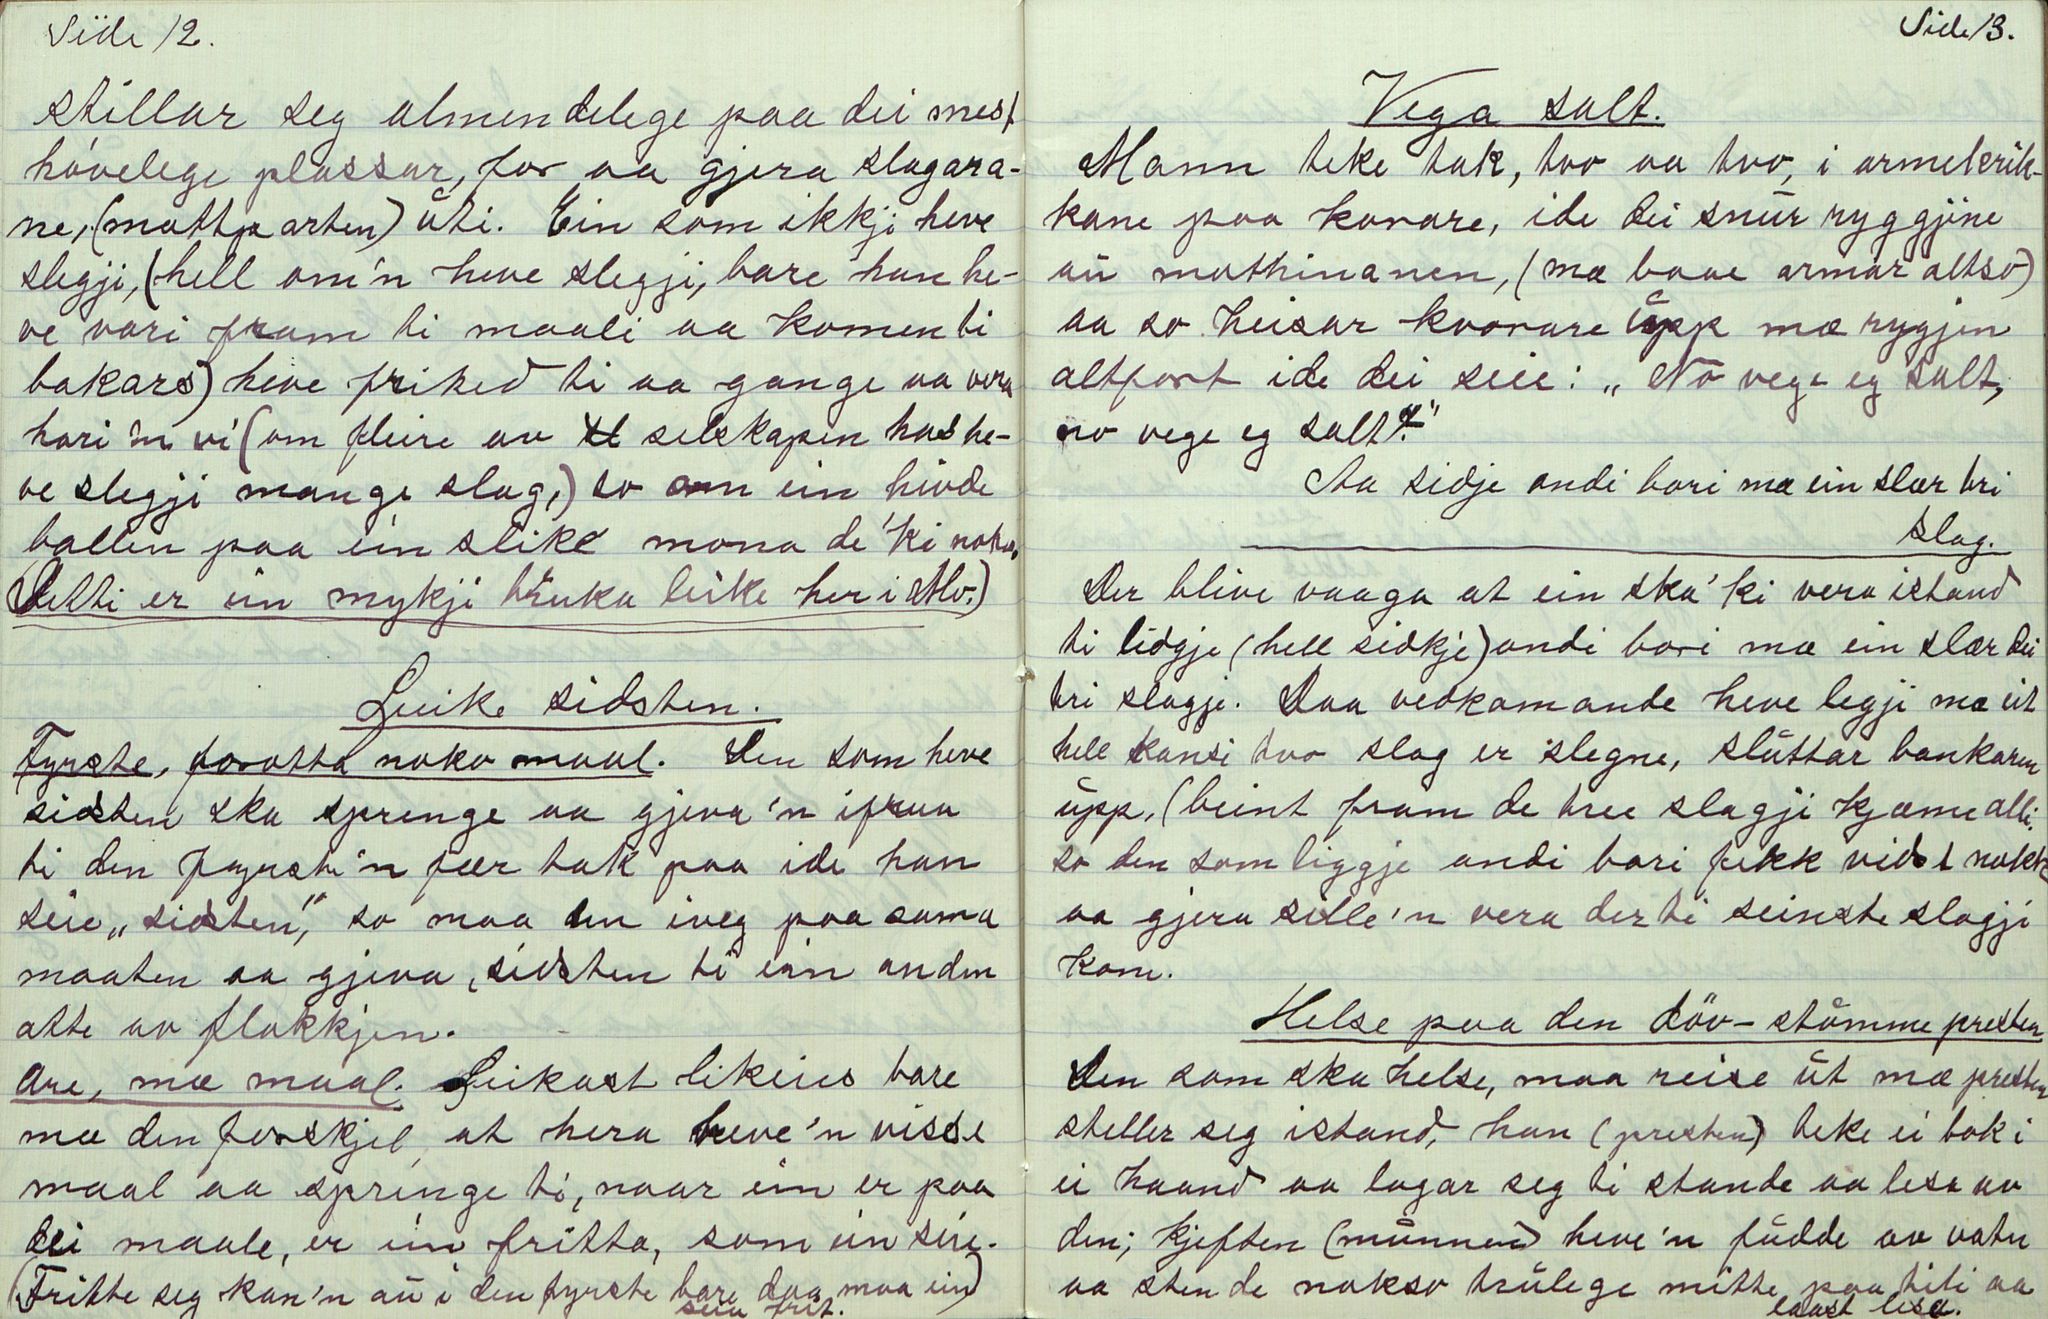 Side 12.
stillar seg almendelege paa dei mest
hövelege plassar, for aa gjera slagara-
ne, (mottparten) ūti. Ein som ikkji heve
slegji, (hell om'n heve slegji, bare han he-
ve vori fram ti maali aa komen ti
bakars) heve friked ti aa gange aa vera
hori'n vi (om fleire av selskapen has he-
ve slegji mange slag,) so om ein hivde
ballen paa ein slike mona de'ki noko.
(Detti er ein mykji brūka leike her i Mo.)
Leike sidsten.
Fyrste, forotta noko maal. Den som heve
sidsten ska springe aa gjeva'n ifraa
ti den fyrste'n fær tak paa ide han
seie „sidsten", so maa den iveg paa sama
maaten aa gjeva, sidsten ti ein anden
atte av flokkjen.
Are, mæ maal. Leikast likeins bare
mæ den forskjel, at hera heve'n visse
maal aa springe ti, naar ein er paa
dei maale, er ein fritta, som ein seie.
(Fritte seg kan'n aū i den fyrste bare daa maa ein)
seia frit.
Side 13.
Vega salt.
Mann teke tak, tvo aa tvo, i armekrik-
kane paa kvorare, ide dei snūr ryggjine
aū mothinanen, (mæ baae armar altso)
aa so heisar kvorare ūpp mæ rygjen
altfort ide dei seie: „No vege eg salt,
no vege eg salt."
Aa sidje ondi bori mæ ein slær tri
slag.
Der blive vaaga at ein ska'ki vera istand
ti lidgje (hell sidkje) ondi bori mæ ein slær dei
tri slagje. Daa vedkomande heve legji mæ eit
hell kansi tvo slag er slegne, slūttar bankaren
ūpp, (beint fram de tree slagji kjæme alli.
so den som liggje ondi bori fekk vidst nokk
aa gjera sille'n vera der ti seinste slagji
kom.
Helse paa den döv-stūmme presten
Den som ska helse, maa reise ūt mæ presten
steller seg istand, han (presten) teke ei bok i
ei haand aa lagar seg ti stande aa lesa av
den; kjeften (mūnnen) heve'n fūdde av vatn
aa stende nokso trūlege mitte paa titi aa
laast lesa.